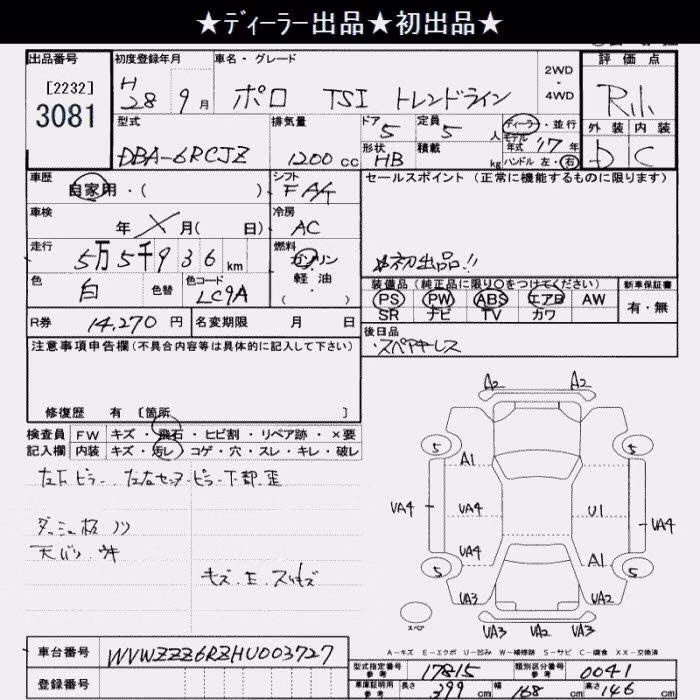 ★ディーラー出品★初出品★
出品番号
[2232]
3081
初度登録年月
H28 9月
車名・グレード
ポロ TSI トレンドライン
2WD・4WD
評価点
R
型式
DBA-6RCJZ
排気量
1200cc
ドア 5
定員 5人
形状 HB
積載 kg
ディーラー・並行
モデル年式 17年
ハンドル 左・右
外装 D
内装 C
車歴
自家用・( )
シフト
FAT
セールスポイント(正常に機能するものに限ります)
☆初出品!!
車検
年 月( 日)
冷房
AC
走行
5万5千936km
燃料
ガソリン・軽油・( )
色
白
色替
色コード
LC9A
装備品(純正品に限り○をつけてください)
PS PW ABS エアB AW
SR ナビ TV カワ
新車保証書
有・無
R券 14,270円
名変期限 月 日
後日品
・スペアキーレス
注意事項申告欄(不具合内容等は具体的に記入して下さい)
修復歴 有 [箇所 ]
検査員記入欄
FW キズ・飛石・ヒビ割・リペア跡・×要
内装 キズ・汚レ・コゲ・穴・スレ・キレ・破レ
左下ピラー 左右センターピラー下部歪
ダッシュ板
天バリ ウキ
キズ・E・スリキズ
A2 A2
5 5
A1
UA4 UA4 U1 UA4
UA4 A1
5 5
UA3 UA2
スペア
UA3 UA2 UA3
A-キズ E-エクボ U-凹み W-補修跡 S-サビ C-腐食 XX-交換済
車台番号 WVWZZZ6RZHU003727
登録番号
型式指定番号参考 17815
類別区分番号参考 0041
車庫証明用参考 長さ 399cm 幅 168cm 高さ 146cm